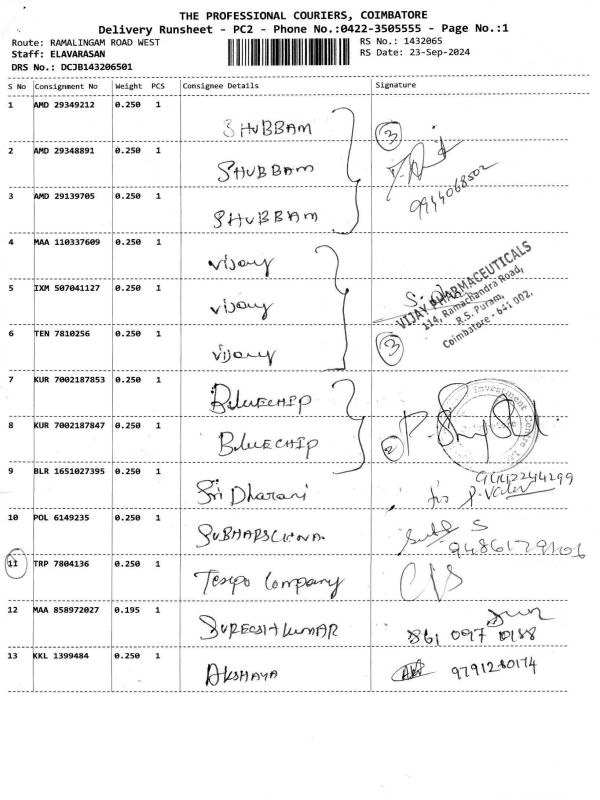 THE PROFESSIONAL COURIERS, COIMBATORE
Delivery Runsheet - PC2 - Phone No.:0422-3505555 - Page No.:1
Route: RAMALINGAM ROAD WEST
RS No.: 1432065
Staff: ELAVARASAN
RS Date: 23-Sep-2024
DRS No.: DCJB143206501
S No Consignment No Weight PCS Consignee Details Signature
1 AMD 29349212 0.250 1 SHUBBAM 3
2 AMD 29348891 0.250 1 SHUBBAM
3 AMD 29139705 0.250 1 SHUBBAM
4 MAA 110337609 0.250 1 vijay
5 IXM 507041127 0.250 1 vijay
VIJAY PHARMACEUTICALS
114, Ramachandra Road,
R.S. Puram,
Coimbatore - 641 002.
6 TEN 7810256 0.250 1 vijay 3
7 KUR 7002187853 0.250 1 BLUECHIP
Investment Centre
8 KUR 7002187847 0.250 1 BLUECHIP 2
9 BLR 1651027395 0.250 1 Sri Dharani
9442244299
for
10 POL 6149235 0.250 1
11 TRP 7804136 0.250 1 Tempo Company
12 MAA 858972027 0.195 1 SURESH KUMAR
861 097 0188
13 KKL 1399484 0.250 1 AKSHAYA